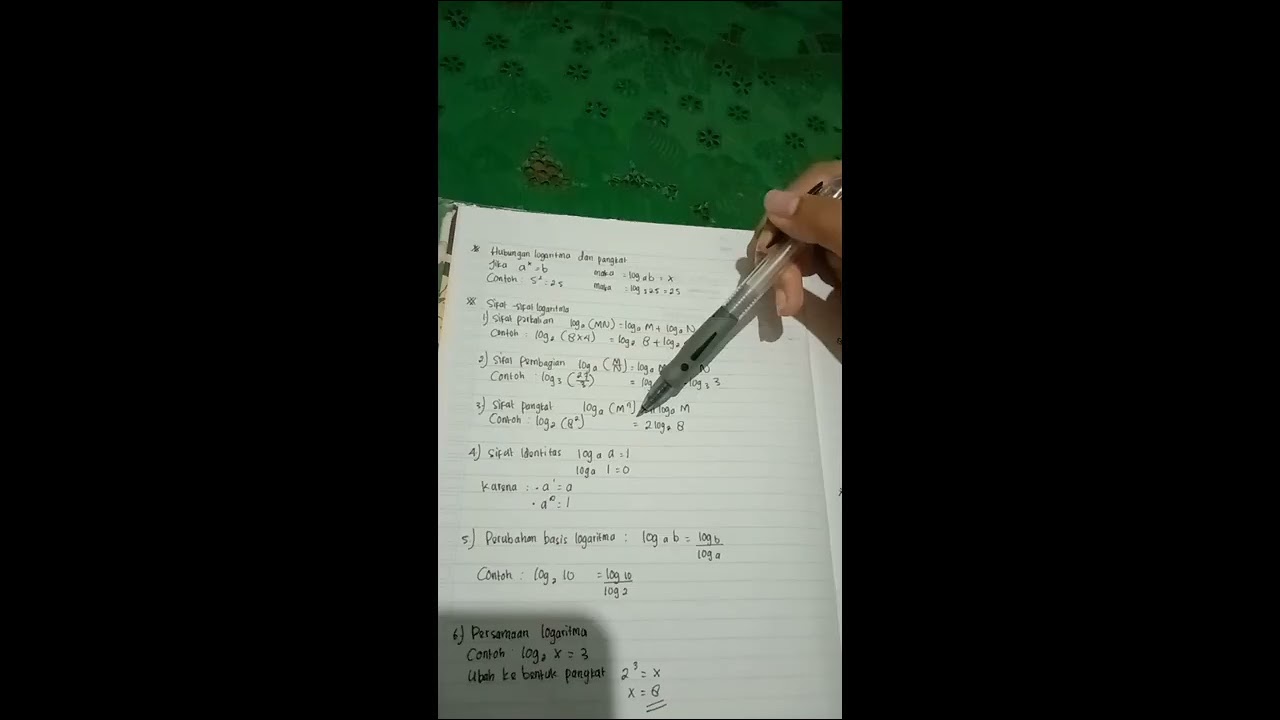 ※ Hubungan logaritma dan pangkat
Jika aˣ = b maka = logₐ b = x
Contoh : 5² = 25 maka = log₅ 25 = 25
※ Sifat-sifat logaritma
1) Sifat perkalian logₐ (MN) = logₐ M + logₐ N
Contoh : log₂ (8×4) = log₂ 8 + log₂
2) Sifat Pembagian logₐ (M/N) = logₐ M N
Contoh : log₃ (27/3) = log₃ 3
3) Sifat pangkat logₐ (Mⁿ) logₐ M
Contoh : log₂ (8²) = 2 log₂ 8
4) Sifat Identitas logₐ a = 1
logₐ 1 = 0
Karena : · a¹ = a
· a⁰ = 1
5.) Perubahan basis logaritma : logₐ b = log b / log a
Contoh : log₂ 10 = log 10 / log 2
6.) Persamaan logaritma
Contoh : log₂ x = 3
Ubah ke bentuk pangkat 2³ = x
x = 8